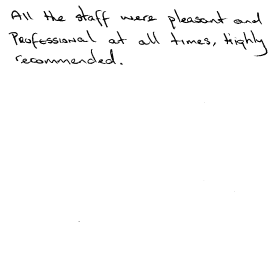 All the staff were pleasant and
Professional at all times, Highly
recommended.